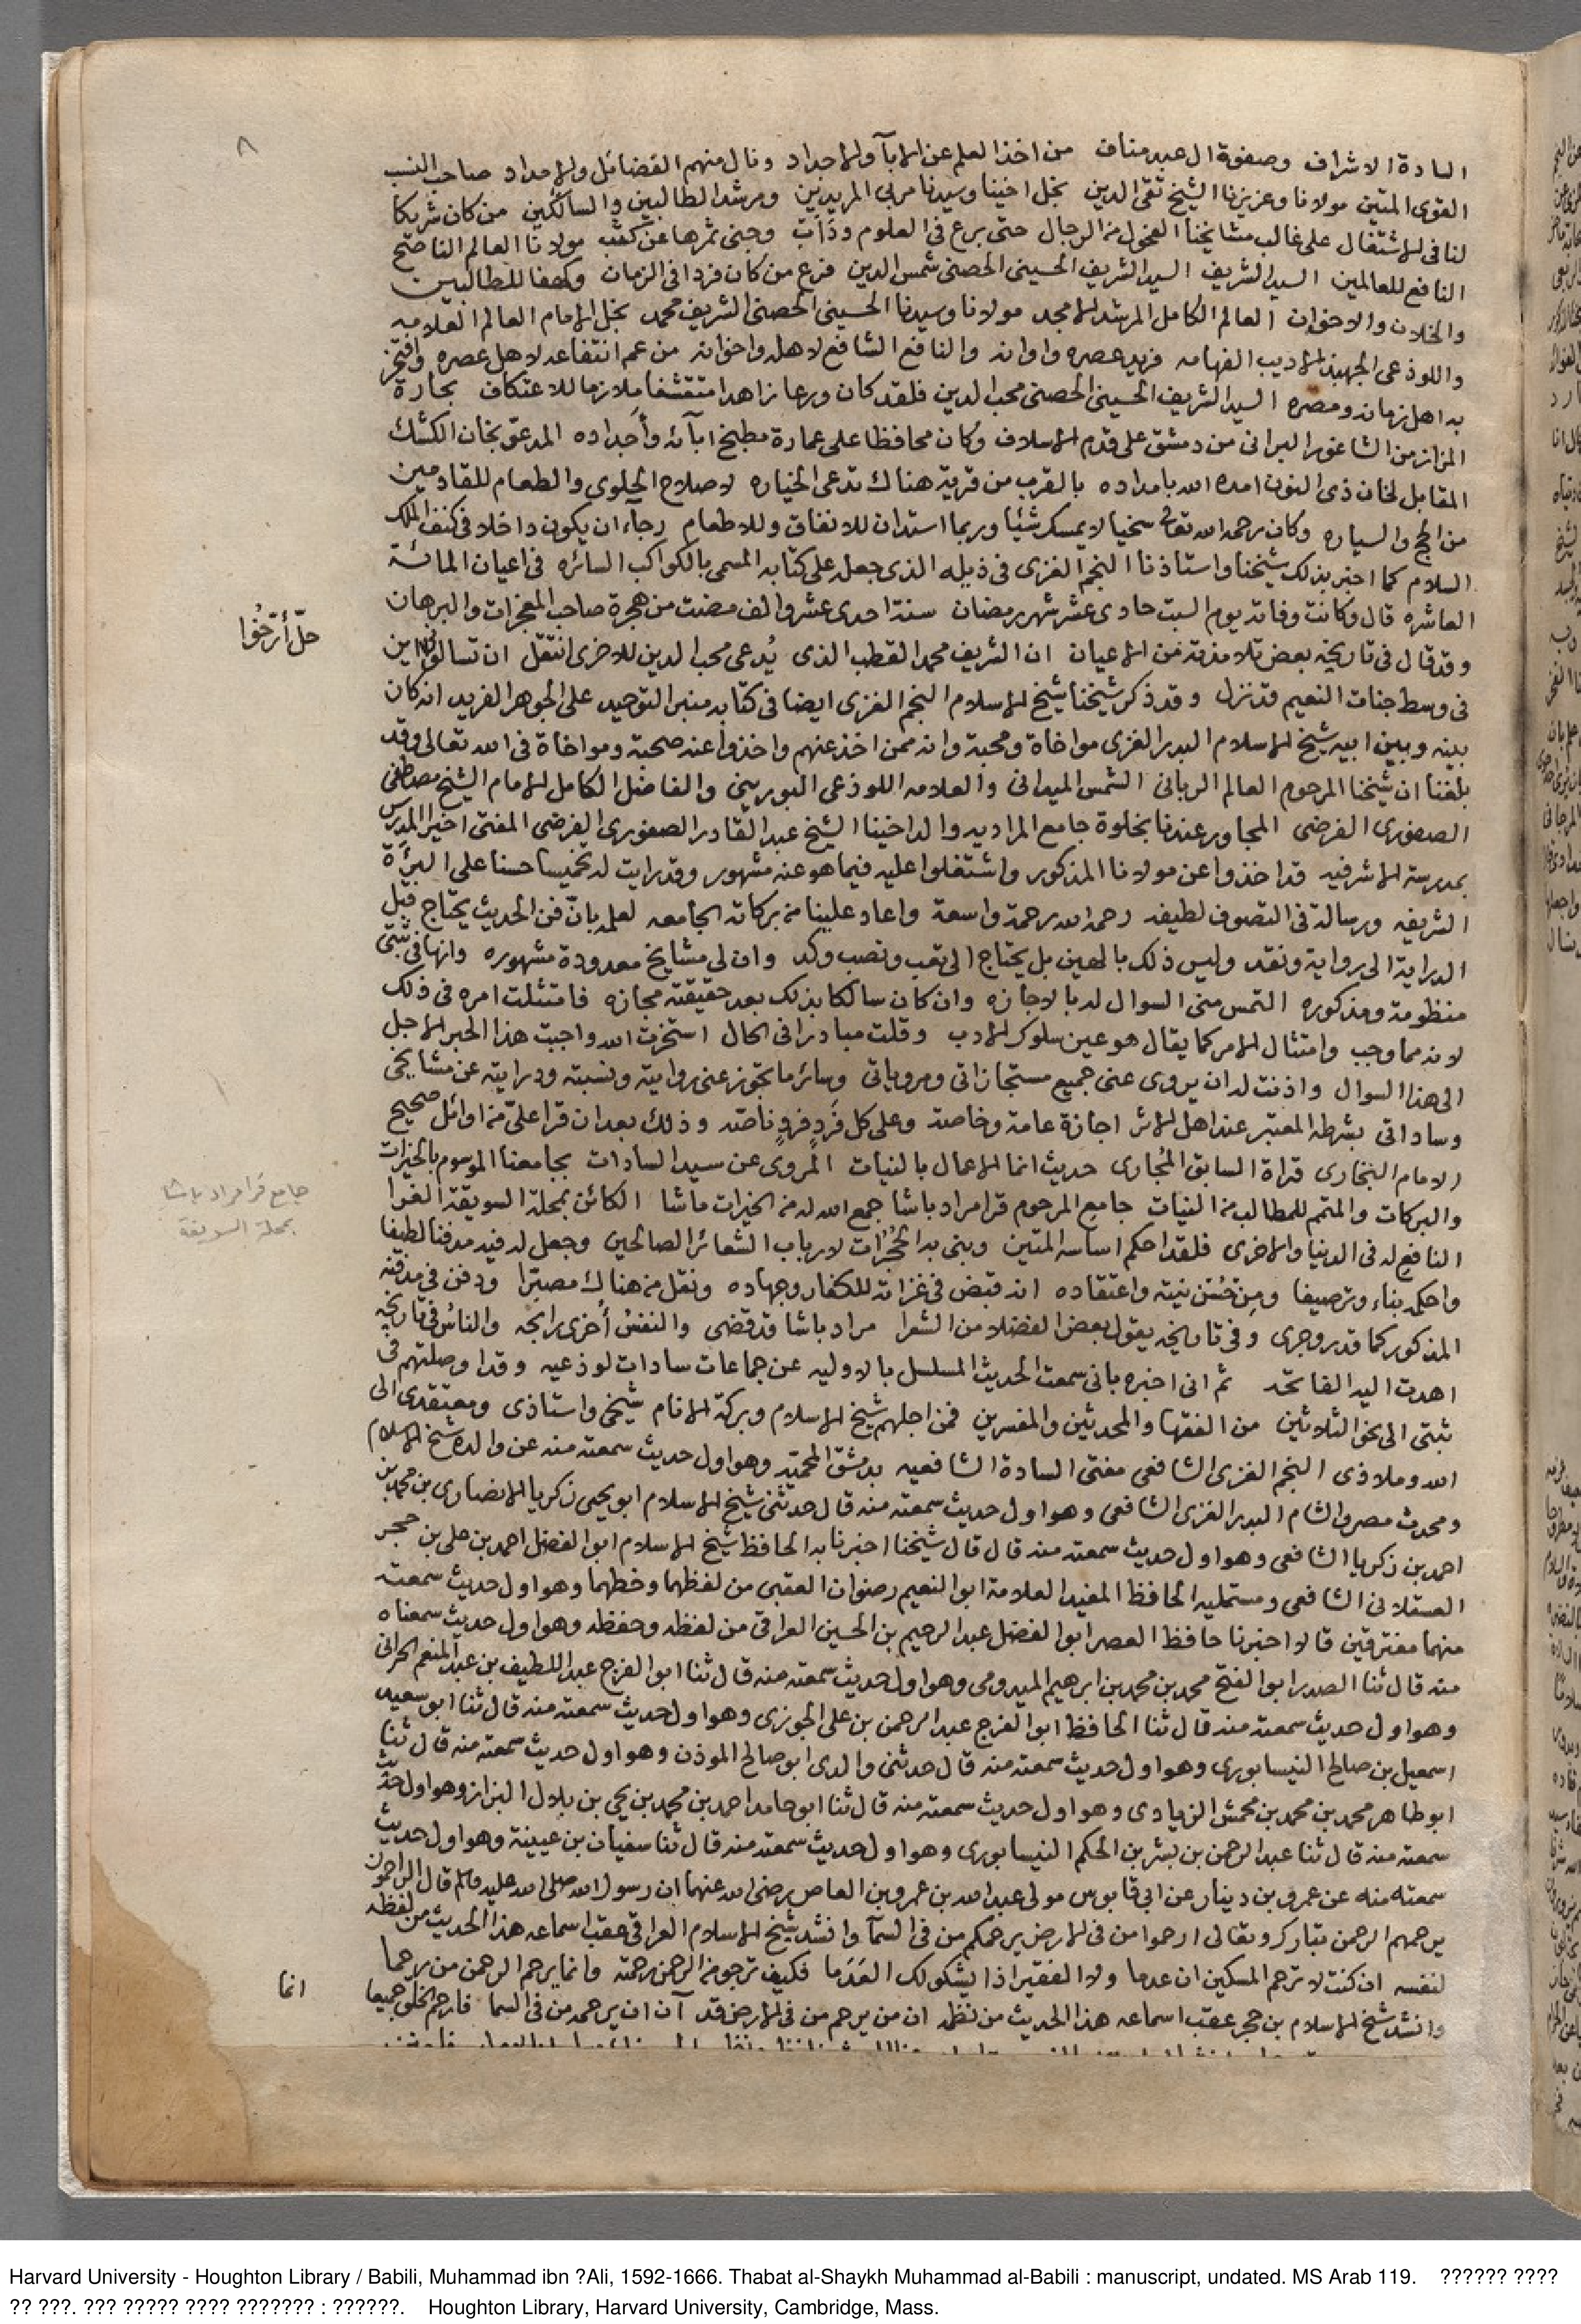 ٨
السادة الاشراف وصفوة ال عبد مناف من اخذ العلم عن الابآ والاجداد ونال منهم الفضائل والامداد صاحب النسب
القوى المتين مولانا وعزيزنا الشيخ تقى الدين نجل اخينا وسيدنا مربى المريدين ومرشد الطالبين والسالكين من كان شريكا
لنا فى الاشتغال على غالب مشايخنا الفحول من الرجال حتى برع فى العلوم ودَاَبَ وجنى ثمرها عن كثب مولانا العالم الناصح
النافع للعالمين السيد الشريف السيد الشريف الحسينى الحصنى شمس الدين فرع من كان فردا فى الزمان وكهفا للطالبين
والخلان والاخوان العالم الكامل المرشد الامجد مولانا وسيدنا الحسينى الحصنى الشريف محمد نجل الامام العالم العلامه
واللوذعى الجهبذ الاديب الفهامه فريد عصره واوانه والنافع الشافع لاهله واخوانه من عم انتفاعه لاهل عصره وافتخر
به اهل زمانه ومصره السيد الشريف الحسينى الحصنى محب الدين فلقد كان ورعا زاهدا متقشفا ملازما للاعتكاف بحارة
المزاز من الشاغور البرانى من دمشق على قدم الاسلاف وكان محافظا على عمارة مطبخ ابآئه وأجداده المدعو بخان الكشك
المقابل لخان ذى النون امده الله بامداده بالقرب من قرية هناك تدعى الخياره لاصلاح الحلوى والطعام للقادمين
من الحج والسياره وكان رحمه الله تعالى سخيا لا يمسك شئيا وربما استدان للانفاق وللاطعام رجآء ان يكون داخلا فى كنف الملك
السلام كما اخبر بذلك شيخنا واستاذنا النجم الغزى فى ذيله الذى جعله على كتابه المسمى بالكواكب السائره فى اعيان المائة
العاشره قال وكانت وفاته يوم السبت حادى عشر شهر رمضان سنة احدى عشر والف مضت من هجرة صاحب المعجزات والبرهان
حلّ أرّخُوا
وقد قال فى تاريخه بعض تلامذته من الاعيان ان الشريف محمد القطب الذى يُدعى محب الدين للاخرى انتقل ان تسالونى اين
فى وسط جنات النعيم قد نزل وقد ذكر شيخنا شيخ الاسلام النجم الغزى ايضا فى كتابه منبر التوحيد على الجوهر الفريد انه كان
بينه وبين ابيه شيخ الاسلام البدر الغزى مواخاة ومحبة وانه ممن اخذ عنهم واخذوا عنه صحبة ومواخاة فى الله تعالى وقد
بلغنا ان شيخنا المرحوم العالم الربانى الشمس الميدانى والعلامه اللوذعى البورينى والفاضل الكامل الامام الشيخ مصطفى
الصفورى الفرضى المجاور عندنا بخلوة جامع المراديه والد اخينا الشيخ عبد القادر الصفورى الفرضى المفتى اخير المدرس
بمدرسة الاشرفيه قد اخذوا عن مولانا المذكور واشتغلوا عليه فيما هو عنه مشهور وقد رايت له تخميسا حسنا على البرأة
الشريفه ورسالة فى التصوف لطيفه رحمه الله رحمة واسعة واعاد علينا من بركاته الجامعه لعلمه بانّ فن الحديث يحتاج قبل
الدراية الى رواية ونقد وليس ذلك بالهين بل يحتاج الى تعب ونصب وكد وان لى مشايخ معدودة مشهوره وانها فى ثبتى
منظومة ومذكوره التمس منى السوال له بالاجازه وان كان سالكا بذلك بعد حقيقته مجازه فامتثلت امره فى ذلك
لانه مما وجب وامتثال الامر كما يقال هو عين سلوك الادب وقلت مبادرا فى الحال استخرت الله واجبت هذا الحبر الاجل
الى هذا السوال واذنت له ان يروى عنى جميع مستجازاتى ومروياتى وسائر ما تجوز عنى روايته ونسبته ودرايته عن مشايخى
وساداتى بشرطه المعتبر عند اهل الاثر اجازة عامة وخاصة وعلى كل فَردٍ فردٍ ناصّه وذلك بعد ان قرا علىّ من اوائل صحيح
الامام البخارى قراة السابق المُجارى حديث انما الاعمال بالنيات المروى عن سيد السادات بجامعنا الموسوم بالخيرات
جامع قرامراد باشا
بمحلة السويقة
والبركات والمتمم للمطالب من النيات جامع المرحوم قرامراد باشا جمع الله له من الخيرات ماشا الكائن بمحلة السويقة الغرا
النافع له فى الدنيا والاخرى فلقد احكم اساسه المتين وبنى به الحُجُرَات لارباب الشعائر الصالحين وجعل له فيه مدفنا لطيفا
واحكمه بناء وترصيفا ومِن حُسْن نيته واعتقاده انه قبض فى غزاته للكفار وجهاده ونقل من هناك مصبّرا ودفن فى مدفنه
المذكور كما قدر وجرى وفى تاريخه يقول بعض الفضلا من الشعرا مراد باشا قد قضى والنفسُ أخرى رابحه والناسُ فى تاريخه
اهدت اليه الفاتحه ثم انى اخبره بانى سمعت الحديث المسلسل بالاوليه عن جماعات سادات لوذعيه وقد اوصلتهم فى
ثبتى الى نحو الثلاثين من الفقها والمحدثين والمفسرين فمن اجلهم شيخ الاسلام وبركة الانام شيخى واستاذى ومعتقدى الى
الله وملاذى النجم الغزى الشافعى مفتى السادة الشافعيه بدمشق المحميّه وهو اول حديث سمعته منه عن والده شيخ الاسلام
ومحدث مصر والشام البدر الغزى الشافعى وهو اول حديث سمعته منه قال حدثنى شيخ الاسلام ابو يحيى زكريا الانصارى بن محمد بن
احمد بن زكريا الشافعى وهو اول حديث سمعته منه قال قال شيخنا اخبرنا به الحافظ شيخ الاسلام ابو الفضل احمد بن على بن حجر
العسقلانى الشافعى ومستمليه الحافظ المفيد العلامة ابو النعيم رضوان العقبى من لفظهما وخطهما وهو اول حديث سمعته
منهما مفترقين قالا اخبرنا حافظ العصر ابو الفضل عبد الرحيم بن الحسين العراقى من لفظه وحفظه وهو اول حديث سمعناه
منه قال ثنا الصدر ابو الفتح محمد بن محمد بن ابرهيم الميدومى وهو اول حديث سمعته منه قال ثنا ابو الفرج عبد اللطيف بن عبد المنعم الحرانى
وهو اول حديث سمعته منه قال ثنا الحافظ ابو الفرج عبد الرحمن بن على الجوزى وهو اول حديث سمعته منه قال ثنا ابو سعيد
اسمعيل بن صالح النيسابورى وهو اول حديث سمعته منه قال حدثنى والدى ابو صالح الموذن وهو اول حديث سمعته منه قال ثنا
ابو طاهر محمد بن محمد بن محمش الزيادى وهو اول حديث سمعته منه قال ثنا ابو حامد احمد بن محمد بن يحيى بن بلال البزاز وهو اول حديث
سمعته منه قال ثنا عبد الرحمن بن بشر بن الحكم النيسابورى وهو اول حديث سمعته منه قال ثنا سفيان بن عيينة وهو اول حديث
سمعته منه عن عمرو بن دينار عن ابى قابوس مولى عبد الله بن عمرو بن العاص رضى الله عنهما ان رسول الله صلى الله عليه وسلم قال الراحمون
يرحمهم الرحمن تبارك وتعالى ارحموا من فى الارض يرحمكم من فى السمآ وانشد شيخ الاسلام العراقى عقب اسماعه هذا الحديث من لفظه
لنفسه ان كنت لا ترحم المسكين ان عدما ولا الفقير اذا يشكو لك العَدَما فكيف ترجو من الرحمن رحمته وانما يرحم الرحمن من رحما
انما
وانشد شيخ الاسلام بن حجر عقب اسماعه هذا الحديث من نظمه ان من يرحم من فى الارض قد آن ان يرحمه من فى السما فارحم الخلق جميعا
Harvard University - Houghton Library / Babili, Muhammad ibn ?Ali, 1592-1666. Thabat al-Shaykh Muhammad al-Babili : manuscript, undated. MS Arab 119. ?????? ????
?? ???. ??? ????? ???? ??????? : ??????. Houghton Library, Harvard University, Cambridge, Mass.